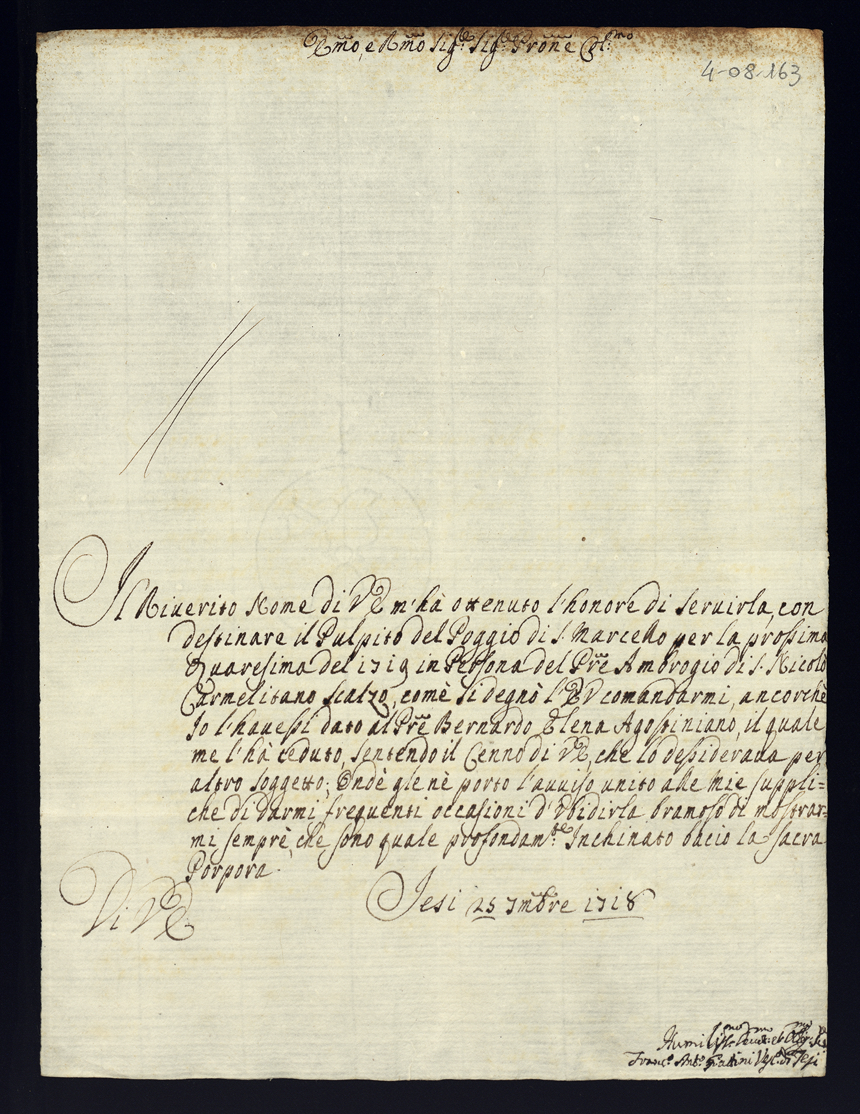 Em̃o, e Rm̃o Sig.e Sig.e Pr̃one Col.mo
4-08-163
Il Riverito Nome di VE m'hà ottenuto l'honore di servirla, con
destinare il Pulpito del Poggio di S. Marcello per la prossima
Quaresima del 1719 in Persona del Pr̃e Ambrogio di S. Nicolò
Carmelitano Scalzo, comè si degnò l'EV comandarmi, ancorchè
Io l'havessi dato al Pr̃e Bernardo Elena Agostiniano, il quale
me l'hà ceduto, sentendo il Cenno di VE, che lo desiderava per
altro soggetto; Ondè gle nè porto l'avviso unito alle mie suppli=
che di darmi frequenti occasioni d'Vbidirla bramoso di mostrar=
mi semprè, che sono quale profondam.te Inchinato bacio la sacra
Porpora.
Di VE
Jesi 25 7mbre 1718
Humiliss.mo
Franc.o Ant.o Giattini Vesc.o di Jesi